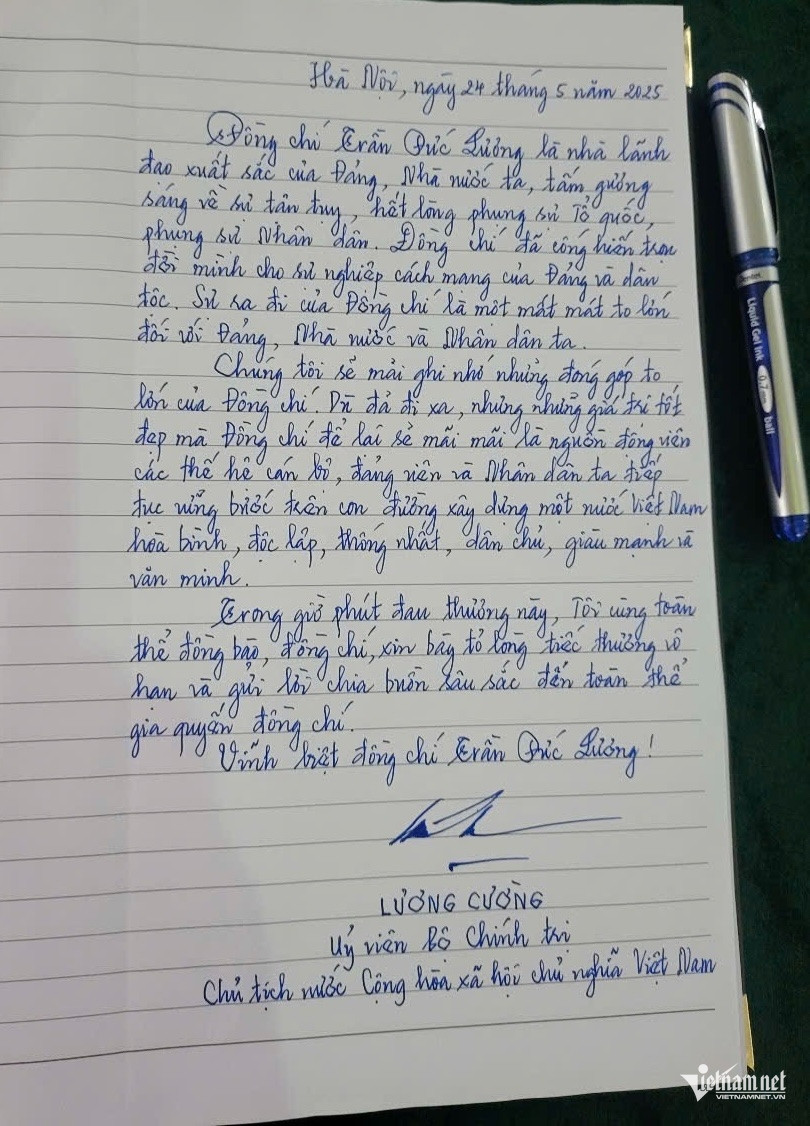 Hà Nội, ngày 24 tháng 5 năm 2025
Đồng chí Trần Đức Lương là nhà lãnh
đạo xuất sắc của Đảng, Nhà nước ta, tấm gương
sáng về sự tận tụy, hết lòng phụng sự Tổ quốc,
phụng sự Nhân dân. Đồng chí đã cống hiến trọn
đời mình cho sự nghiệp cách mạng của Đảng và dân
tộc. Sự ra đi của Đồng chí là một mất mát to lớn
đối với Đảng, Nhà nước và Nhân dân ta.
Chúng tôi sẽ mãi ghi nhớ những đóng góp to
lớn của Đồng chí. Dù đã đi xa, nhưng những giá trị tốt
đẹp mà Đồng chí để lại sẽ mãi mãi là nguồn động viên
các thế hệ cán bộ, đảng viên và Nhân dân ta tiếp
tục vững bước trên con đường xây dựng một nước Việt Nam
hòa bình, độc lập, thống nhất, dân chủ, giàu mạnh và
văn minh.
Trong giờ phút đau thương này, Tôi cùng toàn
thể đồng bào, đồng chí, xin bày tỏ lòng tiếc thương vô
hạn và gửi lời chia buồn sâu sắc đến toàn thể
gia quyến đồng chí.
Vĩnh biệt đồng chí Trần Đức Lương!
LƯƠNG CƯỜNG
Uỷ viên Bộ Chính trị
Chủ tịch nước Cộng hòa xã hội chủ nghĩa Việt Nam
Pentel
Liquid Gel Ink 0.7 ball
Vietnamnet
VIETNAMNET.VN